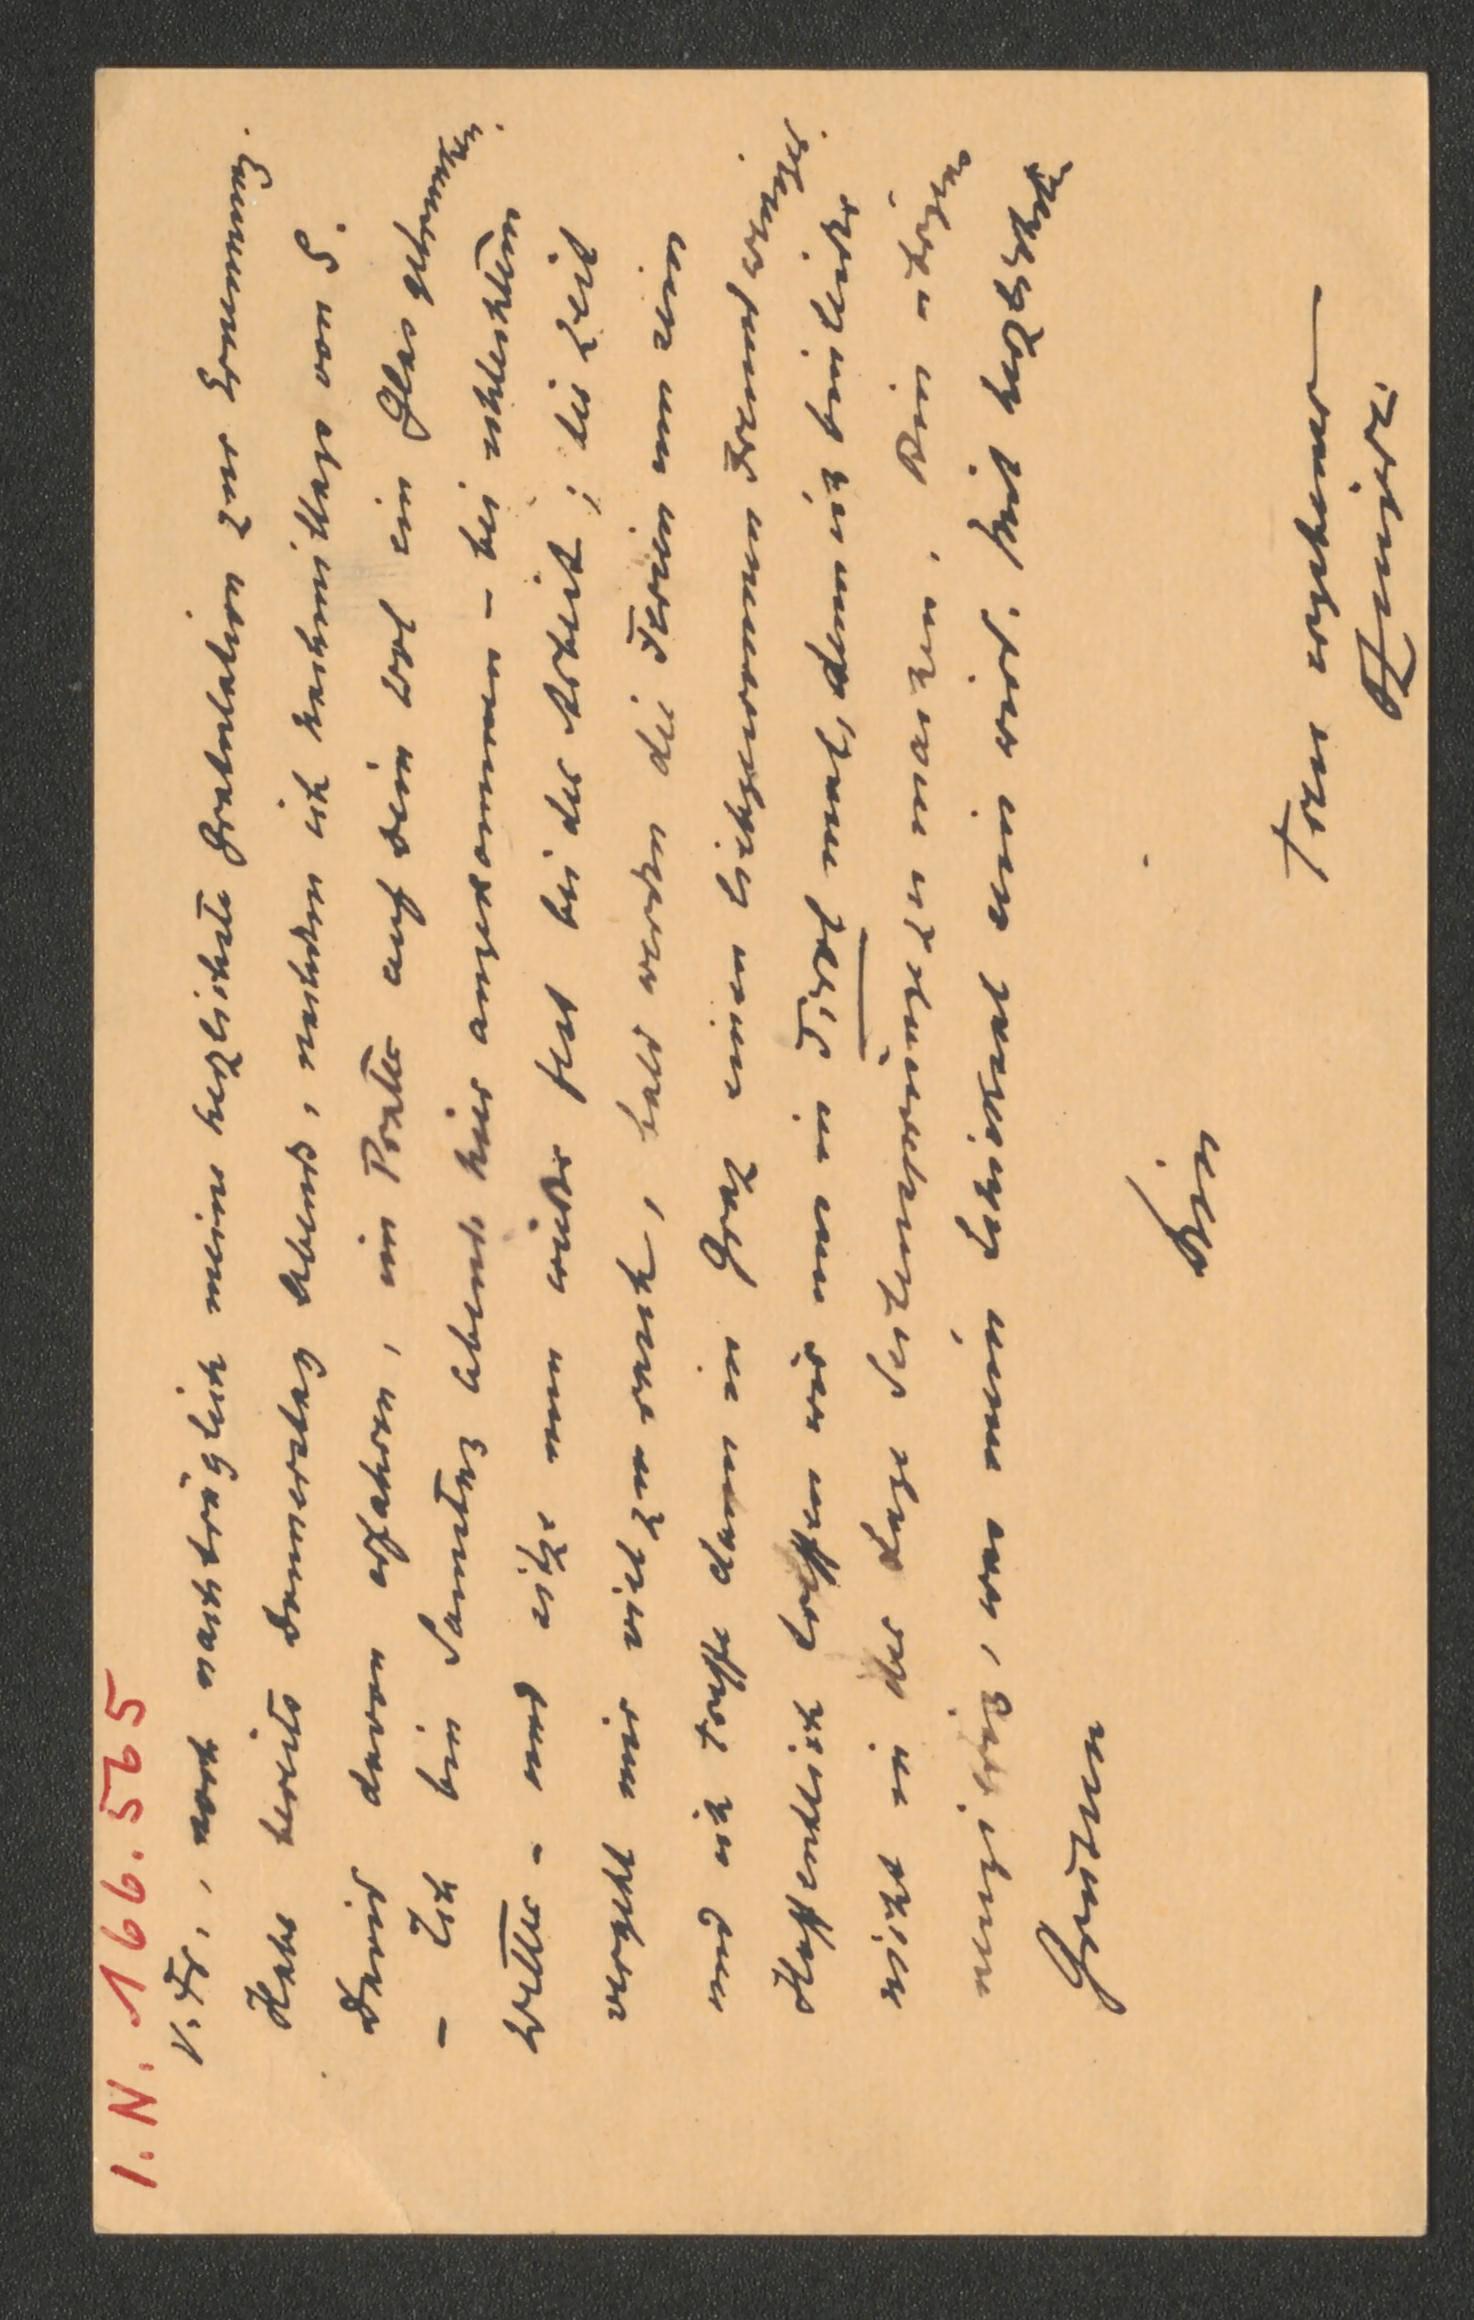 I. N. 166.565
V. Fr., noch nachträglich meine herzlichste Gratulation zur Ernennung.
Habe bereits Donnerstag Abends, nachdem ich nachmittags von S.
David davon erfahren, im Prater auf dein Wol ein Glas getrunken.
– Ich bin Samstag abends hier angekommen – bei schlechtem
Wetter – und sitze nun wieder fest bei der Arbeit; die Zeit
vergeht mir viel zu rasch, bald werden die Ferien um sein
und ich treffe dann in Graz einen liebgewonnenen Freund weniger.
Hoffentlich treffen wir uns in Tirol mal, denn ich bin leider
nicht in der Lage Seitensprünge zu machen. Bin übrigens
neugierig, was mein Schicksal sein wird. Mit herzlichsten
Grüßen
Dein
treu ergebener